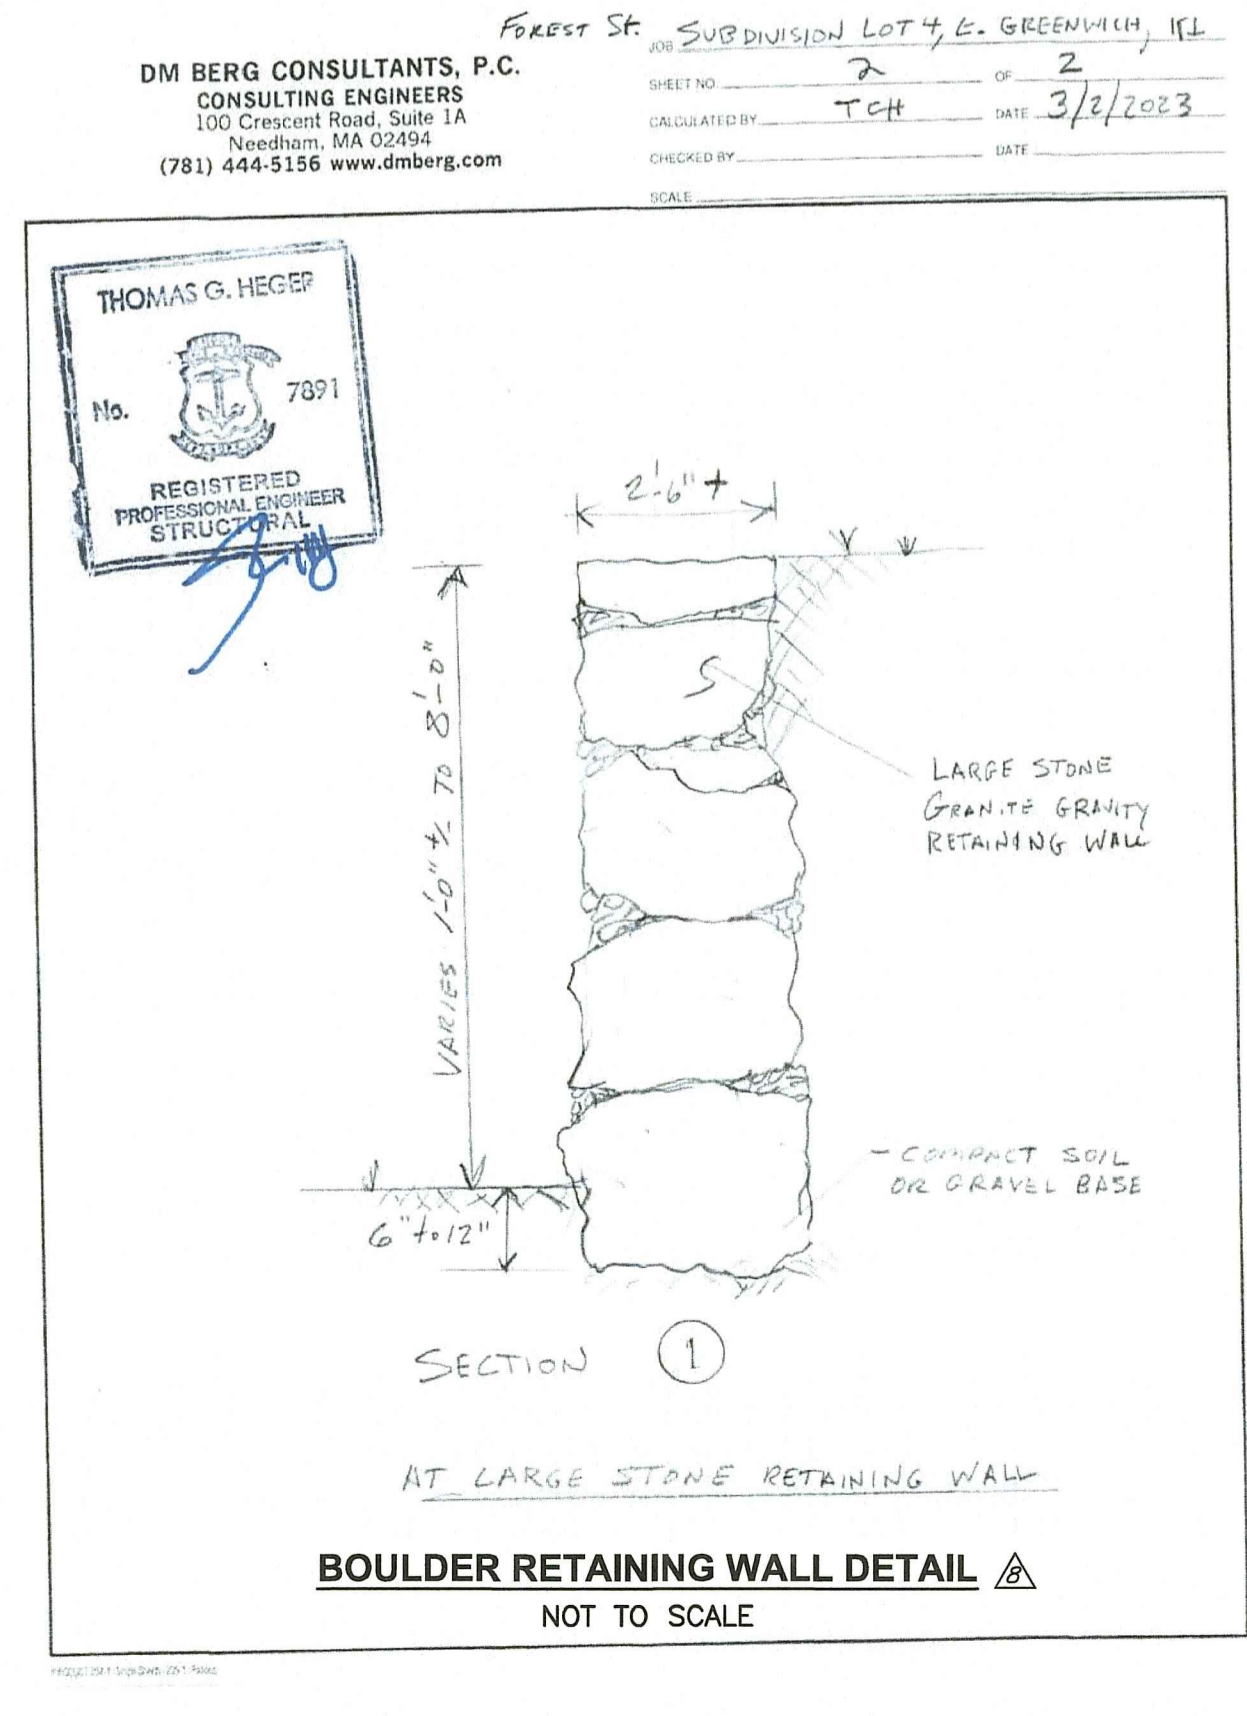 FOREST ST. JOB SUBDIVISION LOT 4, E. GREENWICH, RI
DM BERG CONSULTANTS, P.C.
CONSULTING ENGINEERS
100 Crescent Road, Suite 1A
Needham, MA 02494
(781) 444-5156 www.dmberg.com
SHEET NO. 2 OF 2
CALCULATED BY TGH DATE 3/2/2023
CHECKED BY DATE
SCALE
THOMAS G. HEGER
No. 7891
REGISTERED
PROFESSIONAL ENGINEER
STRUCTURAL
2'-6" +
VARIES 1'-0" +/- TO 8'-0"
LARGE STONE
GRANITE GRAVITY
RETAINING WALL
- COMPACT SOIL
OR GRAVEL BASE
6" to 12"
SECTION 1
AT LARGE STONE RETAINING WALL
BOULDER RETAINING WALL DETAIL 8
NOT TO SCALE